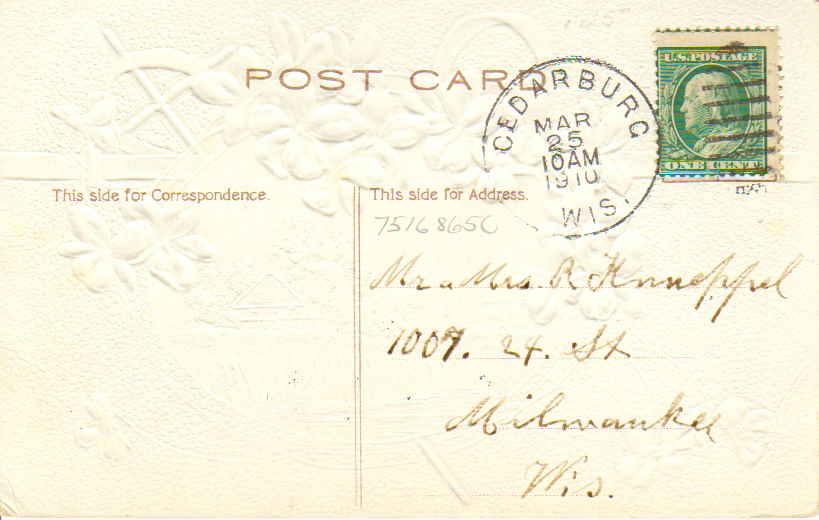 POST CARD
CEDARBURG
MAR
25
10AM
1910
WIS.
U.S. POSTAGE
ONE CENT
This side for Correspondence.
This side for Address.
75168650
Mr & Mrs. R. Knueppel
1007. 24. St
Milwaukee
Wis.